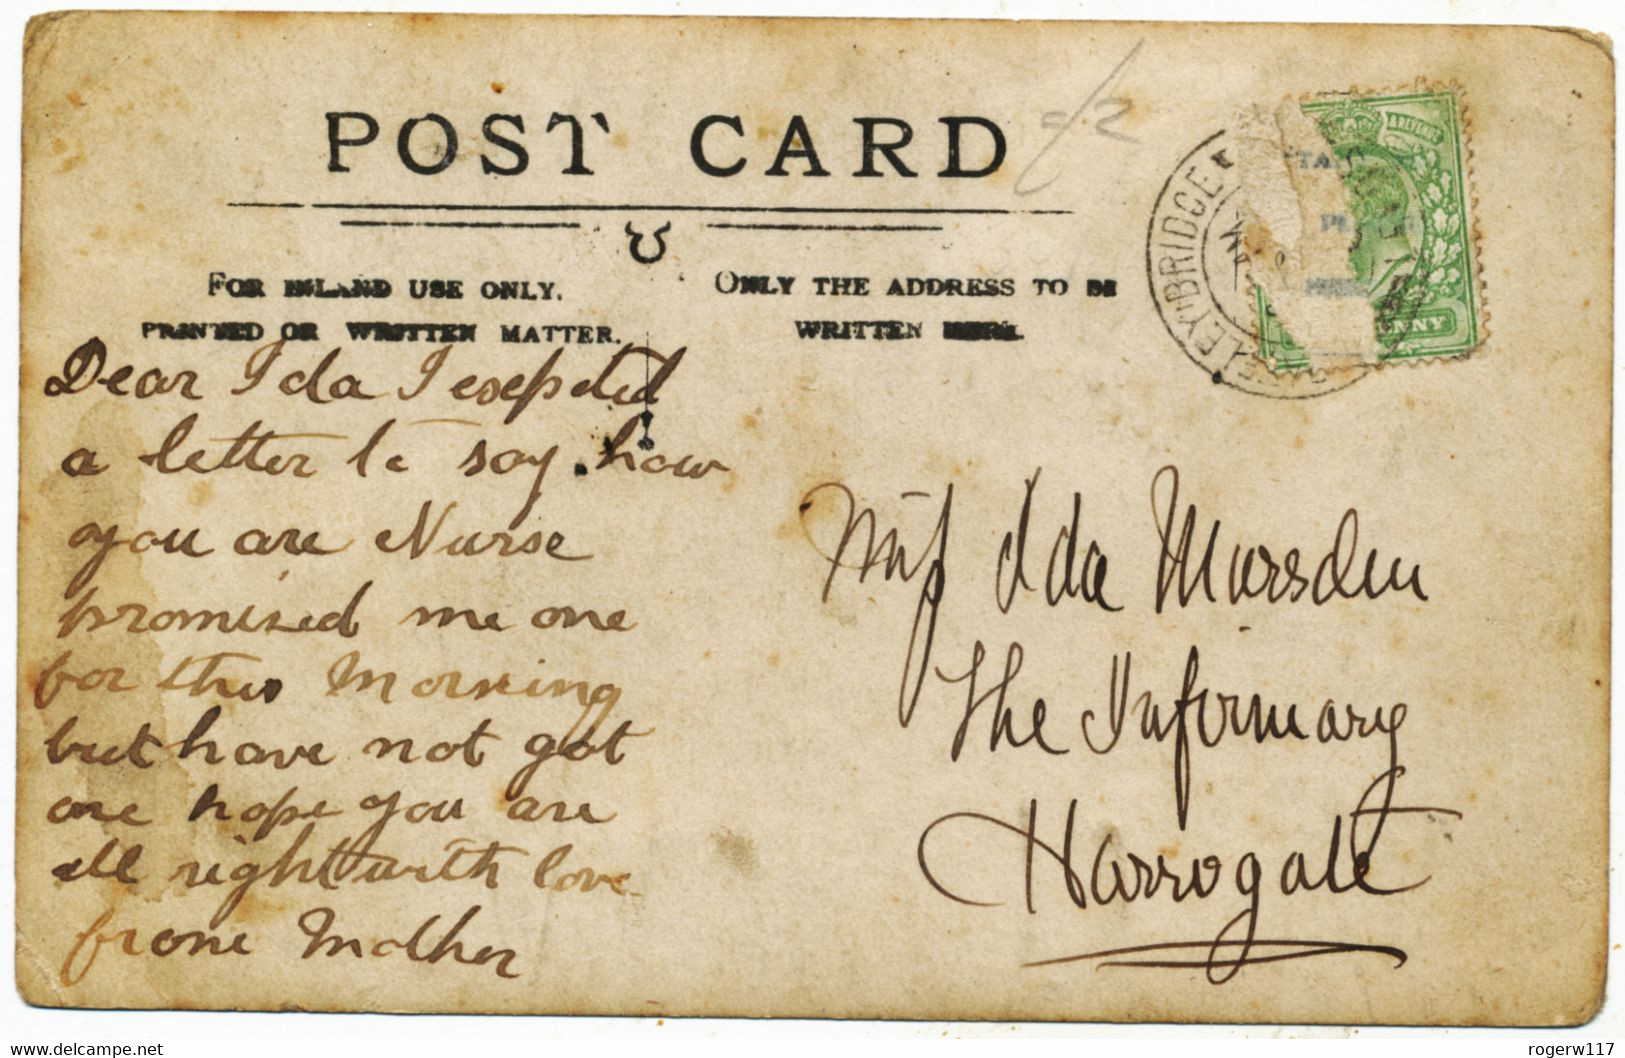 POST CARD
FOR INLAND USE ONLY.
PRINTED OR WRITTEN MATTER.
ONLY THE ADDRESS TO BE
WRITTEN HERE.
Dear Ida I exepcted
a letter to say how
you are Nurse
promised me one
for this Morning
but have not got
one hope you are
all right with love
frome Mother
Miss Ida Marsden
The Infirmary
Harrogate
& REVENUE
BRIDGE
www.delcampe.net
rogerw117